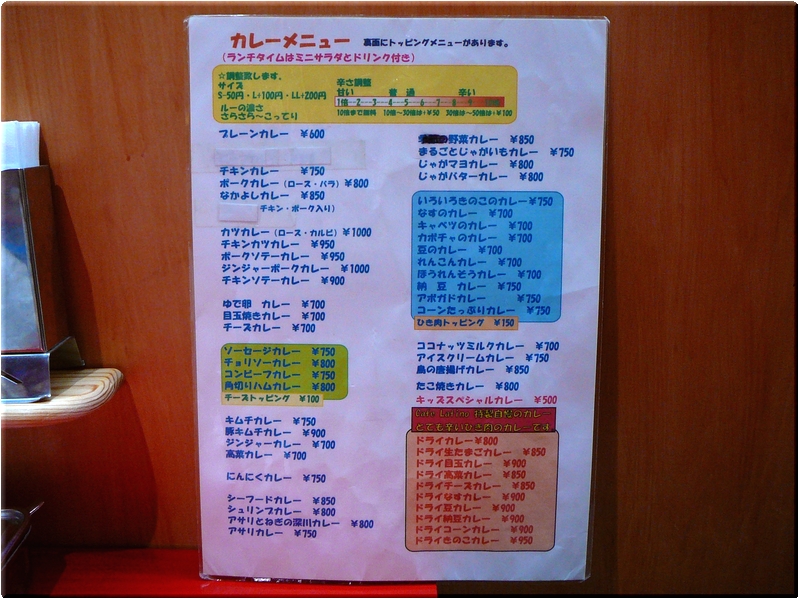 カレーメニュー 裏面にトッピングメニューがあります。
(ランチタイムはミニサラダとドリンク付き)
☆調整致します。
サイズ
S-50円・L+100円・LL+200円
ルーの濃さ
さらさら～こってり
辛さ調整
甘い 普通 辛い
1倍 2 3 4 5 6 7 8 9
10倍まで無料 10倍～30倍は+¥50 30倍は～50倍は+¥100
プレーンカレー ¥600
チキンカレー ¥750
ポークカレー (ロース・バラ) ¥800
なかよしカレー ¥850
チキン・ポーク入り)
カツカレー (ロース・カルビ) ¥1000
チキンカツカレー ¥950
ポークソテーカレー ¥950
ジンジャーポークカレー ¥1000
チキンソテーカレー ¥900
ゆで卵 カレー ¥700
目玉焼きカレー ¥700
チーズカレー ¥700
ソーセージカレー ¥750
チョリソーカレー ¥800
コンビーフカレー ¥750
角切りハムカレー ¥800
チーズトッピング ¥100
キムチカレー ¥750
豚キムチカレー ¥900
ジンジャーカレー ¥700
高菜カレー ¥700
にんにくカレー ¥750
シーフードカレー ¥850
シュリンプカレー ¥800
アサリとねぎの深川カレー ¥800
アサリカレー ¥750
野菜カレー ¥850
まるごとじゃがいもカレー ¥750
じゃがマヨカレー ¥800
じゃがバターカレー ¥800
いろいろきのこのカレー ¥750
なすのカレー ¥700
キャベツのカレー ¥700
カボチャのカレー ¥700
豆のカレー ¥700
れんこんカレー ¥700
ほうれんそうカレー ¥700
納 豆 カレー ¥750
アボガドカレー ¥750
コーンたっぷりカレー ¥750
ひき肉トッピング ¥150
ココナッツミルクカレー ¥700
アイスクリームカレー ¥750
鳥の唐揚げカレー ¥850
たこ焼きカレー ¥800
キッズスペシャルカレー ¥500
特製自慢のカレー
とても辛いひき肉のカレーです
ドライカレー ¥800
ドライ生たまごカレー ¥850
ドライ目玉カレー ¥900
ドライ高菜カレー ¥850
ドライチーズカレー ¥850
ドライなすカレー ¥900
ドライ豆カレー ¥900
ドライ納豆カレー ¥900
ドライコーンカレー ¥900
ドライきのこカレー ¥950